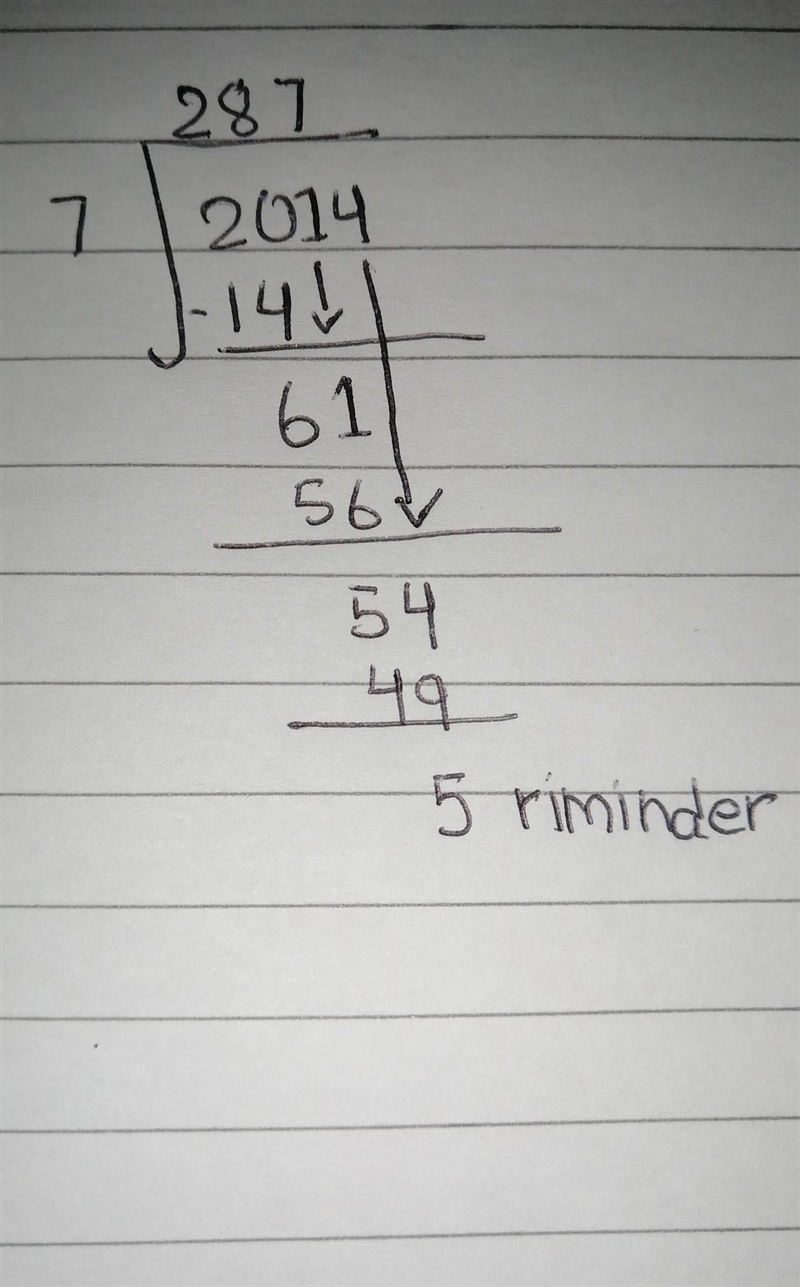 287
7 2014
-14
61
56
54
49
5 riminder